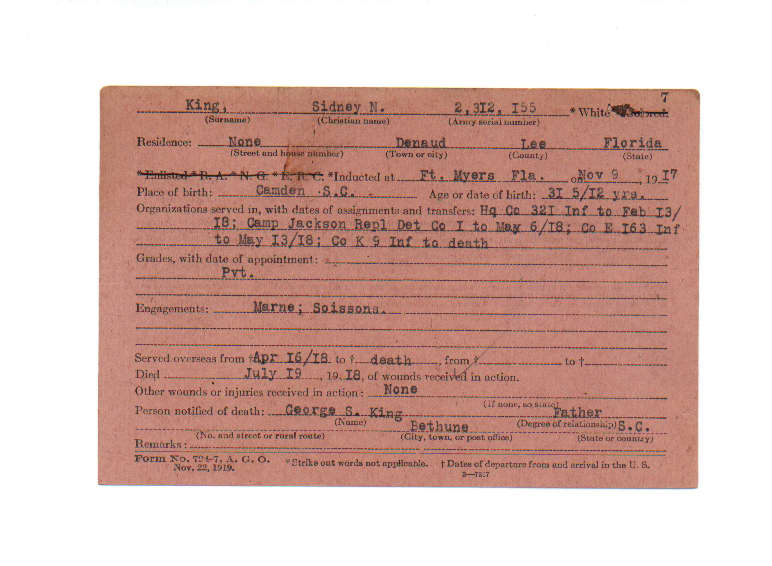 7
King, Sidney N. 2,312, 155 * White Colored.
(Surname) (Christian name) (Army serial number)
Residence: None Denaud Lee Florida
(Street and house number) (Town or city) (County) (State)
* Enlisted * R. A. * N. G. * E. R. C. *Inducted at Ft. Myers Fla. on Nov 9, 1917
Place of birth: Camden S.C. Age or date of birth: 3I 5/I2 yrs.
Organizations served in, with dates of assignments and transfers: Hq Co 32I Inf to Feb I3/
I8; Camp Jackson Repl Det Co I to May 6/I8; Co E I63 Inf
to May I3/I8; Co K 9 Inf to death
Grades, with date of appointment:
Pvt.
Engagements: Marne; Soissons.
Served overseas from † Apr I6/I8 to † death, from † to †
Died July I9, 19I8, of wounds received in action.
Other wounds or injuries received in action: None
(If none, so state)
Person notified of death: George S. King Father
(Name) (Degree of relationship)
Bethune S.C.
(No. and street or rural route) (City, town, or post office) (State or country)
Remarks:
Form No. 724-7, A. G. O. *Strike out words not applicable. † Dates of departure from and arrival in the U. S.
Nov. 22, 1919.